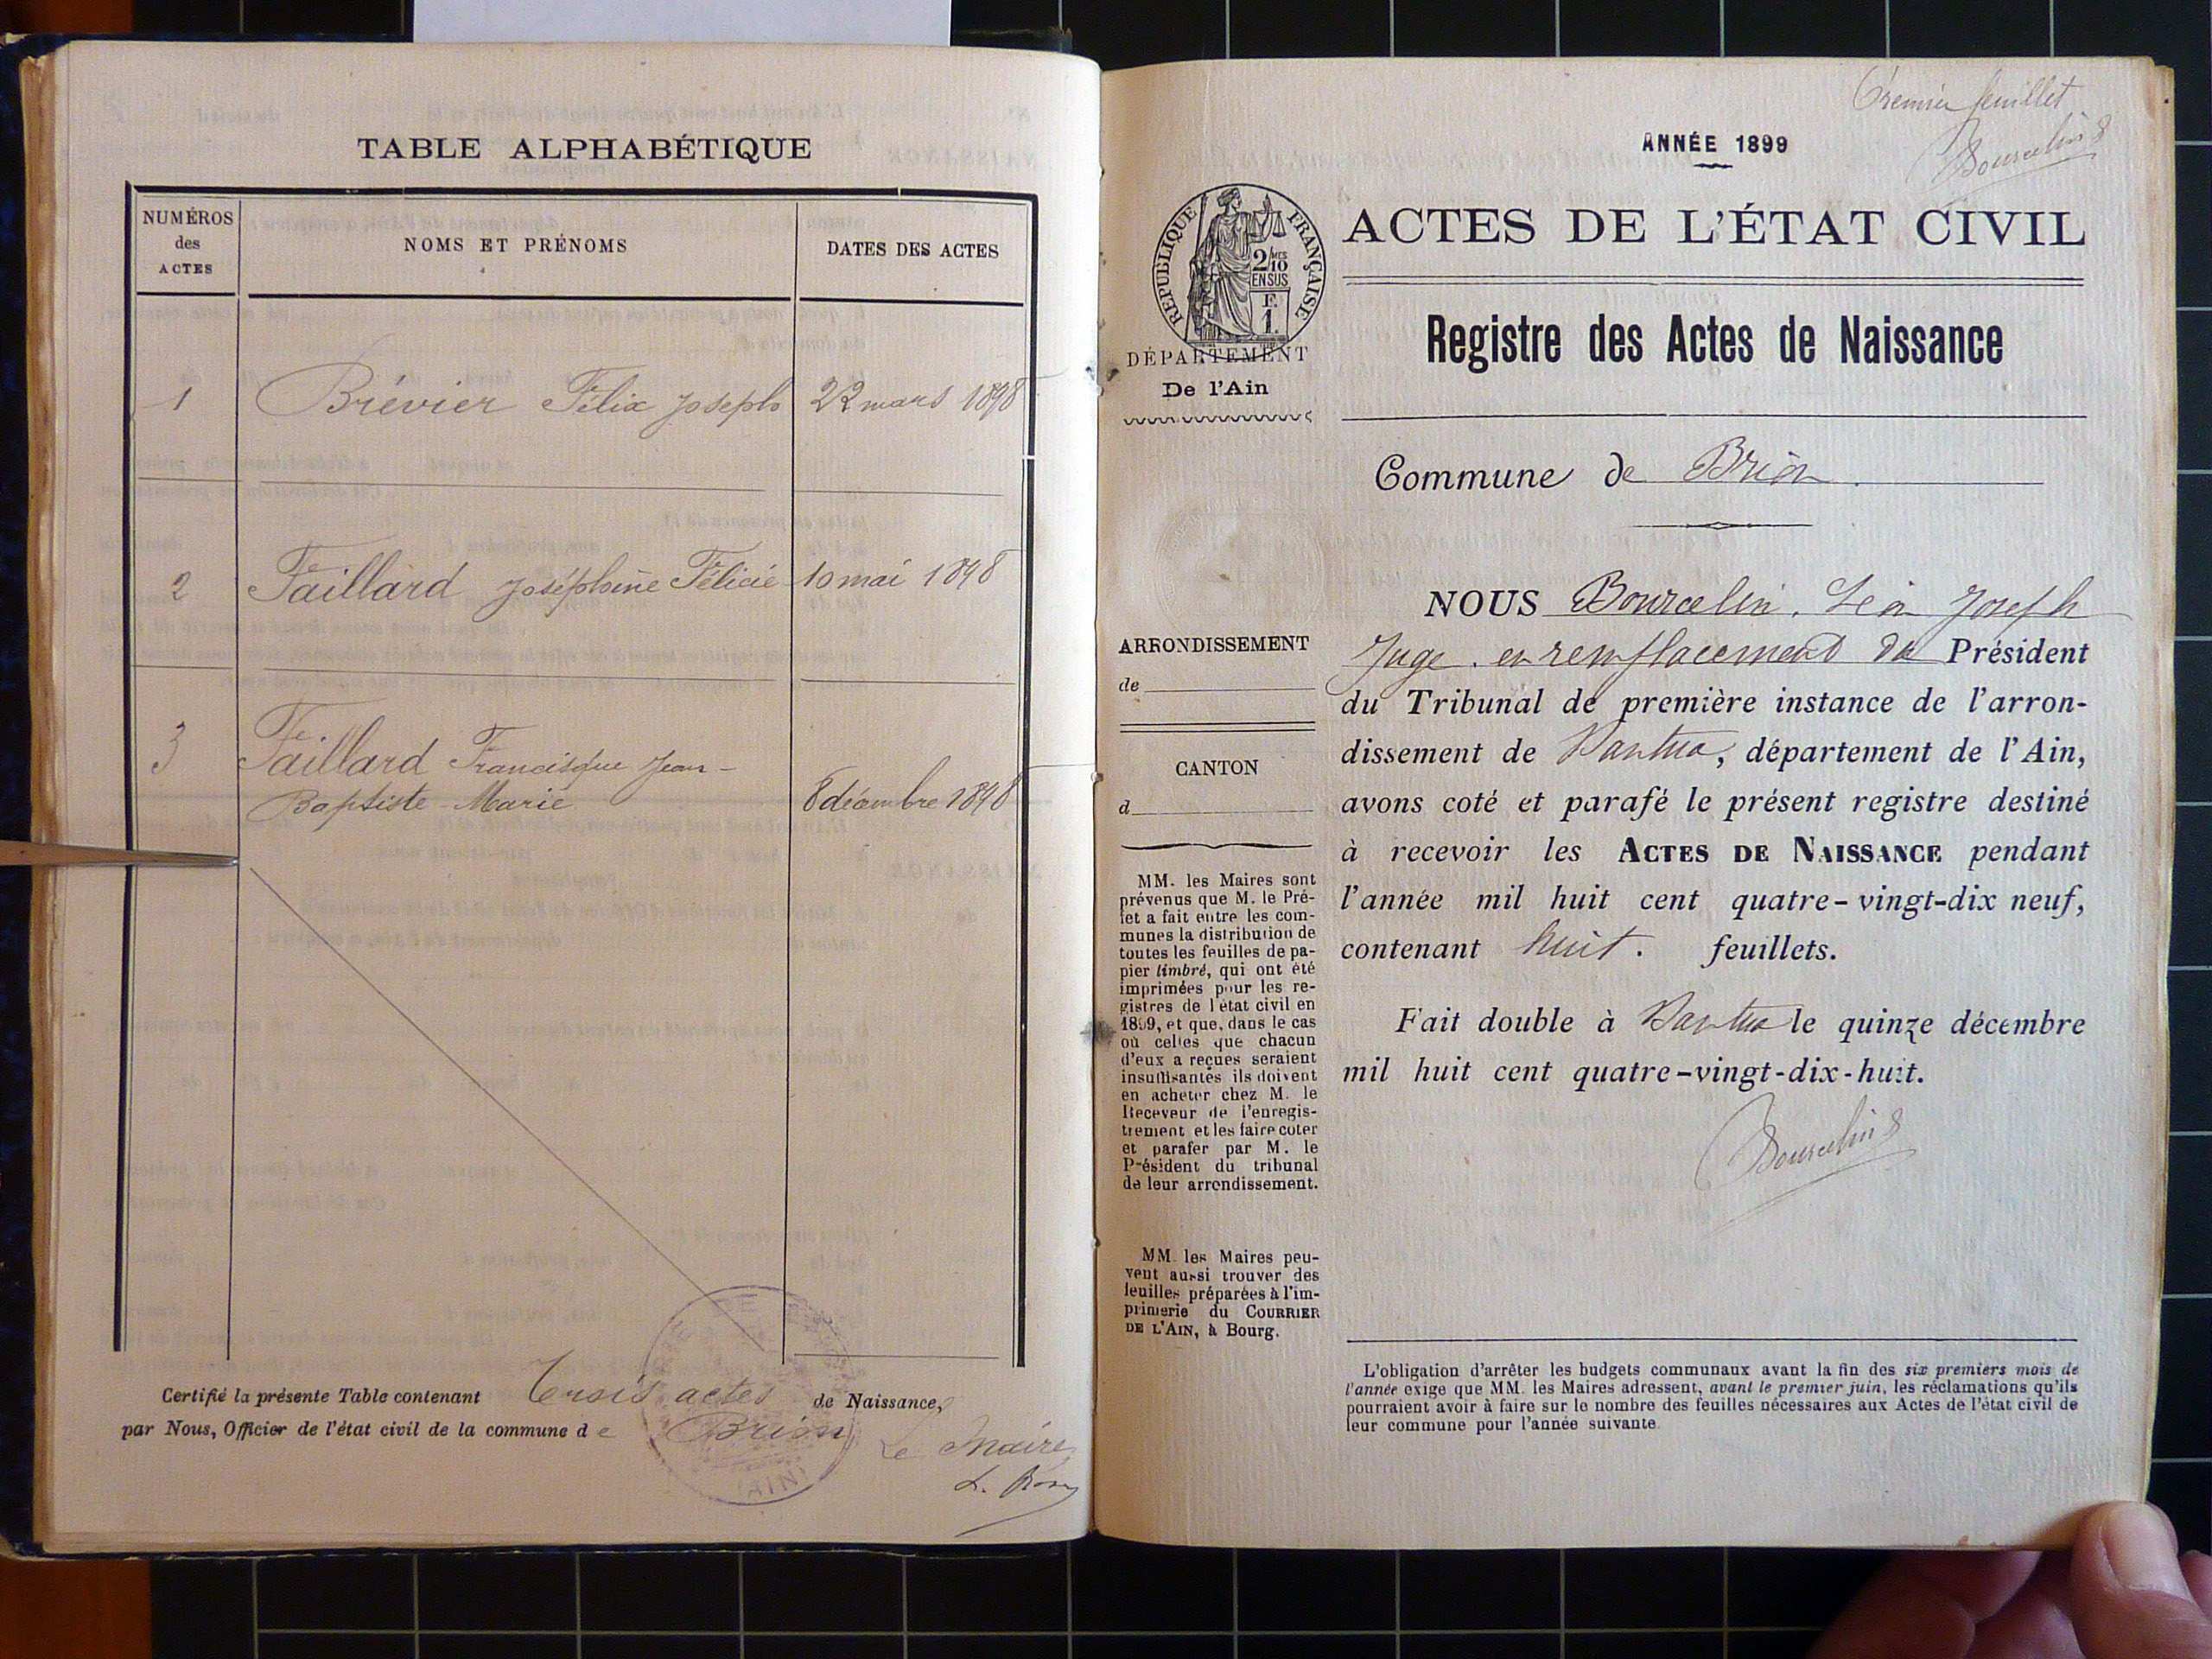 TABLE ALPHABÉTIQUE
NUMÉROS
des
ACTES
NOMS ET PRÉNOMS
DATES DES ACTES
1 Brévier Félix Joseph 22 mars 1898
2 Faillard Joséphine Félicie 10 mai 1898
3 Faillard Francisque Jean-
Baptiste Marie 8 décembre 1898
Certifié la présente Table contenant Trois actes de Naissance,
par Nous, Officier de l'état civil de la commune de Brion
Le Maire
AIN
Premier feuillet
Bourcelin
ANNÉE 1899
RÉPUBLIQUE FRANÇAISE
2/10 MES
EN SUS
F.
1.
DÉPARTEMENT
De l'Ain
ACTES DE L'ÉTAT CIVIL
Registre des Actes de Naissance
Commune de Brion
ARRONDISSEMENT
de
CANTON
d
MM. les Maires sont
prévenus que M. le Pré-
fet a fait entre les com-
munes la distribution de
toutes les feuilles de pa-
pier timbré, qui ont été
imprimées pour les re-
gistres de l'état civil en
1899, et que, dans le cas
où celles que chacun
d'eux a reçues seraient
insuffisantes ils doivent
en acheter chez M. le
Receveur de l'enregis-
trement et les faire coter
et parafer par M. le
Président du tribunal
de leur arrondissement.
MM. les Maires peu-
vent aussi trouver des
feuilles préparées à l'im-
primerie du COURRIER
DE L'AIN, à Bourg.
NOUS Bourcelin, Léon Joseph
Juge, en remplacement du Président
du Tribunal de première instance de l'arron-
dissement de Nantua, département de l'Ain,
avons coté et parafé le présent registre destiné
à recevoir les ACTES DE NAISSANCE pendant
l'année mil huit cent quatre-vingt-dix neuf,
contenant huit. feuillets.
Fait double à Nantua le quinze décembre
mil huit cent quatre-vingt-dix-huit.
Bourcelin
L'obligation d'arrêter les budgets communaux avant la fin des six premiers mois de
l'année exige que MM. les Maires adressent, avant le premier juin, les réclamations qu'ils
pourraient avoir à faire sur le nombre des feuilles nécessaires aux Actes de l'état civil de
leur commune pour l'année suivante.